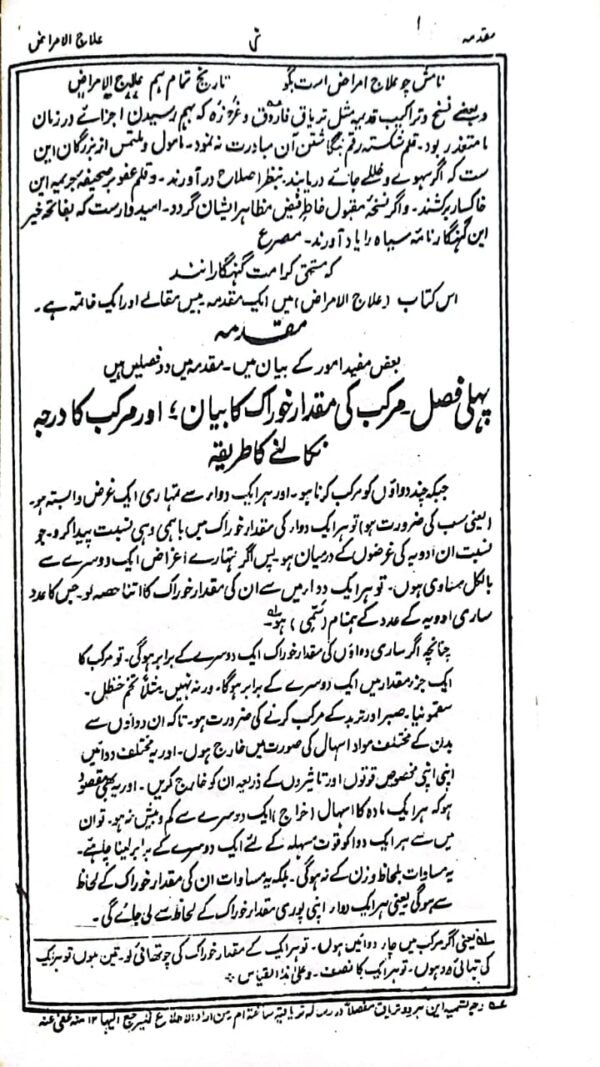 مقدمہ
۱
علاج الامراض
نامش چو علاج امراض است بگو تاریخ تمام ہم علاج الامراض
و بعضے نسخ و تراکیب قدیمہ مثل تریاق فاروق و غرہ کہ بہم رسیدن اجزائے در زمان
ما متعذر بود۔ قلم شکستہ رقم بنگاشتن آن مبادرت نہ نمود۔ مامول و ملتمس از بزرگان این
ست کہ اگر سہوے و خللے جائے دریابند بنظر اصلاح در آورند۔ و قلم عفو بر صحیفہ جریمہ این
خاکسار برکشند۔ و اگر نسخہ مقبول خاطر فیض مظاہر ایشان گردد۔ امیدوارست کہ بفاتحہ خیر
این گنہگار نامہ سیاہ را یاد آورند۔ مصرع
کہ مستحق کرامت گنہگارانند
اس کتاب (علاج الامراض) میں ایک مقدمہ بیس مقالے اور ایک خاتمہ ہے۔
مقدمہ
بعض مفید امور کے بیان میں۔ مقدمہ میں دو فصلیں ہیں
پہلی فصل۔ مرکب کی مقدار خوراک کا بیان؛ اور مرکب کا درجہ
نکالنے کا طریقہ
جبکہ چند دواؤں کو مرکب کرنا ہو۔ اور ہر ایک دواء سے تمہاری ایک غرض وابستہ ہو۔
(یعنی سب کی ضرورت ہو) تو ہر ایک دواء کی مقدار خوراک میں باہمی وہی نسبت پیدا کرو۔ جو
نسبت ان ادویہ کی غرضوں کے درمیان ہو۔ پس اگر تمہارے اغراض ایک دوسرے سے
بالکل مساوی ہوں۔ تو ہر ایک دواء میں سے ان کی مقدار خوراک کا اتنا حصہ لو۔ جس کا عدد
ساری ادویہ کے عدد کے ہمنام (سَمِی) ہو۔
چنانچہ اگر ساری دواؤں کی مقدار خوراک ایک دوسرے کے برابر ہوگی۔ تو مرکب کا
ایک جزء مقدار میں ایک دوسرے کے برابر ہوگا۔ ورنہ نہیں مثلاً تخم حنظل۔
سقمونیا۔ صبر اور تربد کے مرکب کرنے کی ضرورت ہو۔ تاکہ ان دواؤں سے
بدن کے مختلف مواد اسہال کی صورت میں خارج ہوں۔ اور یہ مختلف دوائیں
اپنی اپنی مخصوص قوتوں اور تاثیروں کے ذریعہ ان کو خارج کریں۔ اور یہ بھی مقصود
ہو کہ ہر ایک مادہ کا اسہال (اخراج) ایک دوسرے سے کم و بیش نہ ہو۔ تو ان
میں سے ہر ایک دوا کو قوت مسہلہ کے لئے ایک دوسرے کے برابر لینا چاہئے۔
یہ مساوات بلحاظ وزن کے نہ ہوگی۔ بلکہ یہ مساوات ان کی مقدار خوراک کے لحاظ
سے ہوگی یعنی ہر ایک دواء اپنی پوری مقدار خوراک کے لحاظ سے لی جائے گی۔
لہ یعنی اگر مرکب میں چار دوائیں ہوں۔ تو ہر ایک کے مقدار خوراک کی چوتھائی لو۔ تین ہوں تو ہر ایک
کی تہائی۔ دو ہوں۔ تو ہر ایک کا نصف۔ وعلیٰ ہذا القیاس
وجہ تسمیہ این ہر دو تریاق مفصلاً در رسالہ تریاقیہ ساختہ ام الیہا ۱۲ منہ عفی عنہ